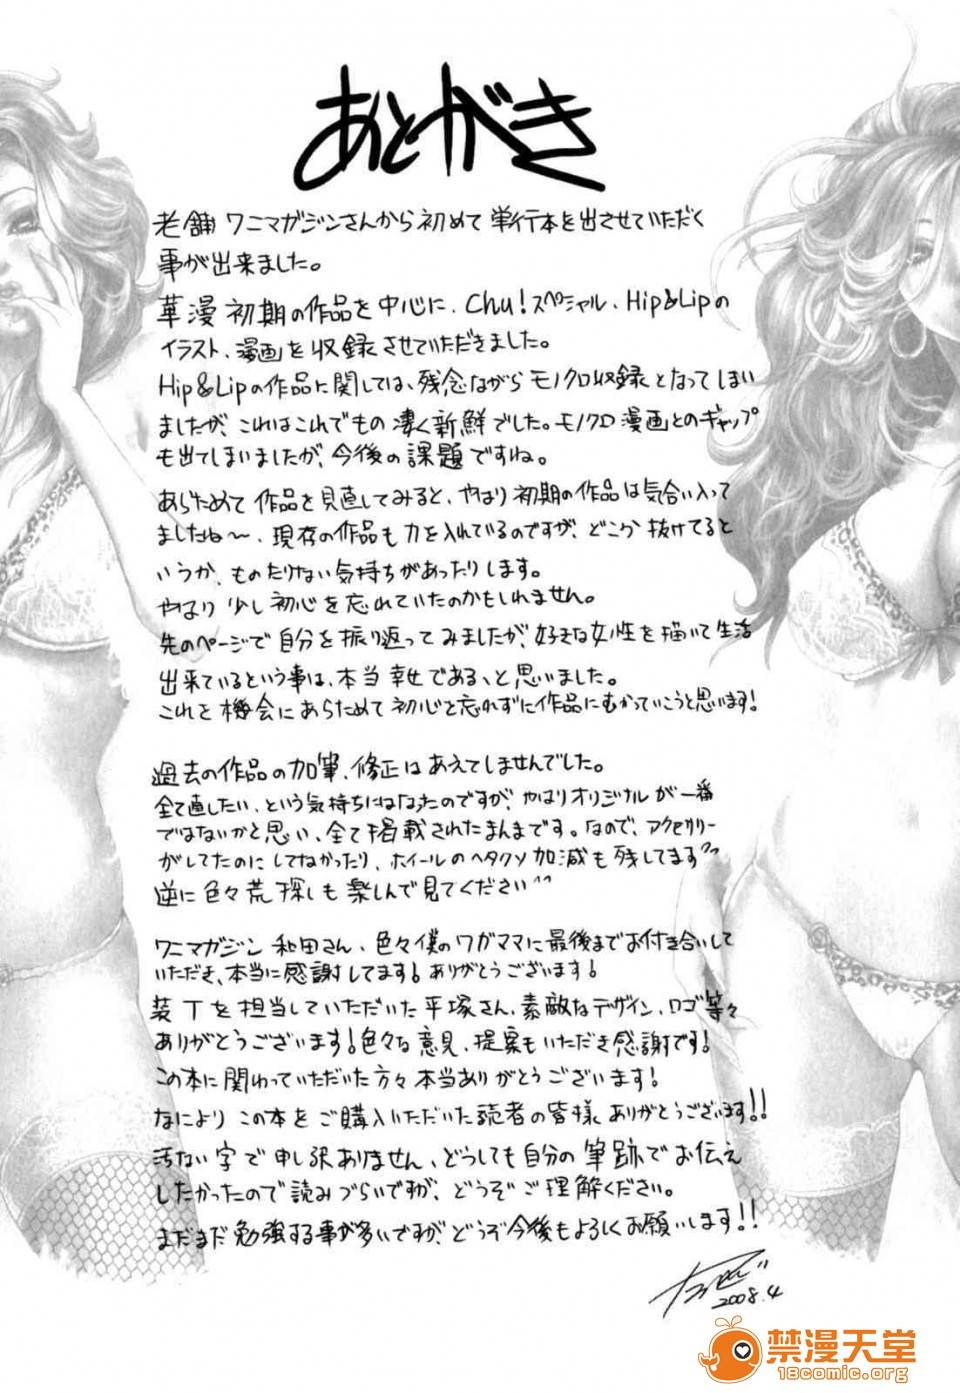 あとがき
老舗ワニマガジンさんから初めて単行本を出させていただく
事が出来ました。
華漫初期の作品を中心に、Chu!スペシャル、Hip&Lipの
イラスト、漫画を収録させていただきました。
Hip&Lipの作品に関しては、残念ながらモノクロ収録となってしまい
ましたが、これはこれでもの凄く新鮮でした。モノクロ漫画とのギャップ
も出てしまいましたが、今後の課題ですね。
あらためて作品を見直してみると、やはり初期の作品は気合い入って
ましたね〜、現存の作品も力を入れているのですが、どこか抜けてると
いうか、ものたりない気持ちがあったりします。
やはり少し初心を忘れていたのかもしれません。
先のページで自分を振り返ってみましたが、好きな女性を描いて生活
出来ているという事は、本当幸せである、と思いました。
これを機会にあらためて初心を忘れずに作品にむかっていこうと思います!
過去の作品の加筆、修正はあえてしませんでした。
全て直したい、という気持ちにはなったのですが、やはりオリジナルが一番
ではないかと思い、全て掲載されたまんまです。なので、アクセサリー
がしてたのにしてなかったり、ホイールのヘタクソ加減も残してます^^
逆に色々荒探しも楽しんで見てください^^
ワニマガジン 和田さん、色々僕のワガママに最後までお付き合いして
いただき、本当に感謝してます!ありがとうございます!
装丁を担当していただいた平塚さん、素敵なデザイン、ロゴ等々
ありがとうございます!色々な意見、提案もいただき感謝です!
この本に関わっていただいた方々本当ありがとうございます!
なによりこの本をご購入いただいた読者の皆様ありがとうございます!!
汚ない字で申し訳ありません、どうしても自分の筆跡でお伝え
したかったので読みづらいですが、どうぞご理解ください。
まだまだ勉強する事が多いですが、どうぞ今後もよろしくお願いします!!
2008.4
禁漫天堂
18comic.org